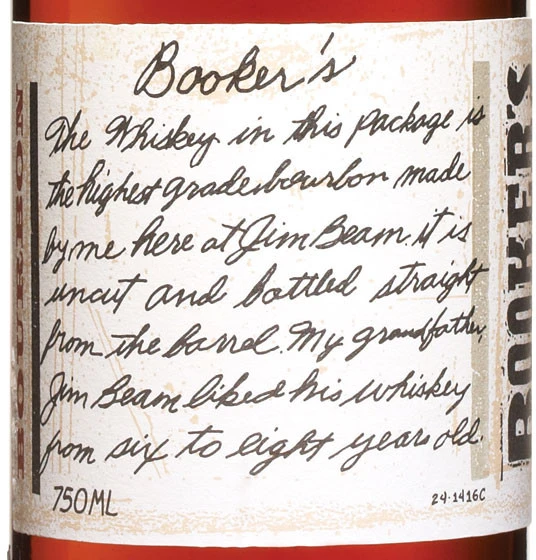 Booker's
The Whiskey in this package is
the highest grade bourbon made
by me here at Jim Beam. it is
uncut and bottled straight
from the barrel. My grandfather,
Jim Beam liked his whiskey
from six to eight years old.
750ML
24-1416C
BOURBON
BOOKER'S